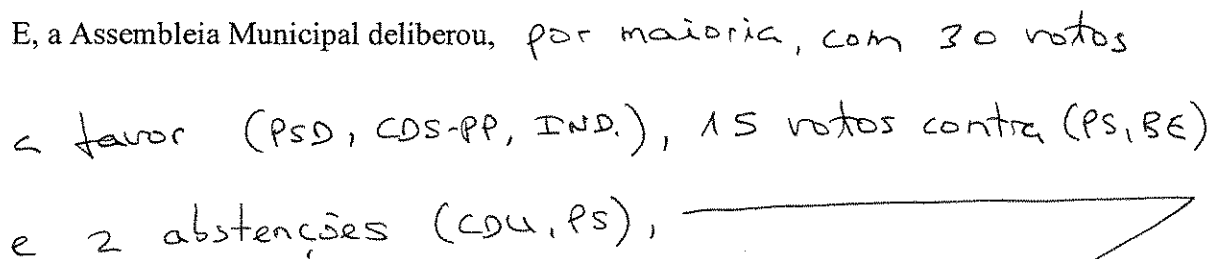 E, a Assembleia Municipal deliberou, por maioria, com 30 votos
a favor (PSD, CDS-PP, IND.), 15 votos contra (PS, BE)
e 2 abstenções (CDU, PS),